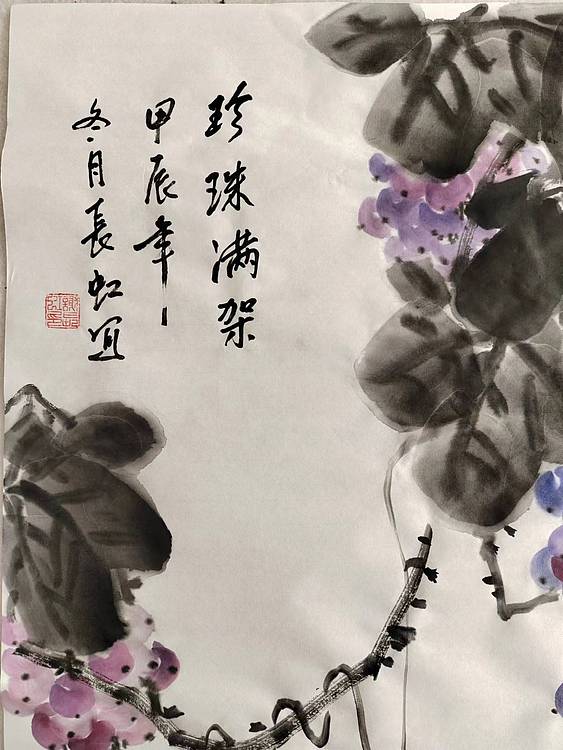 珍珠满架
甲辰年
冬月長虹写